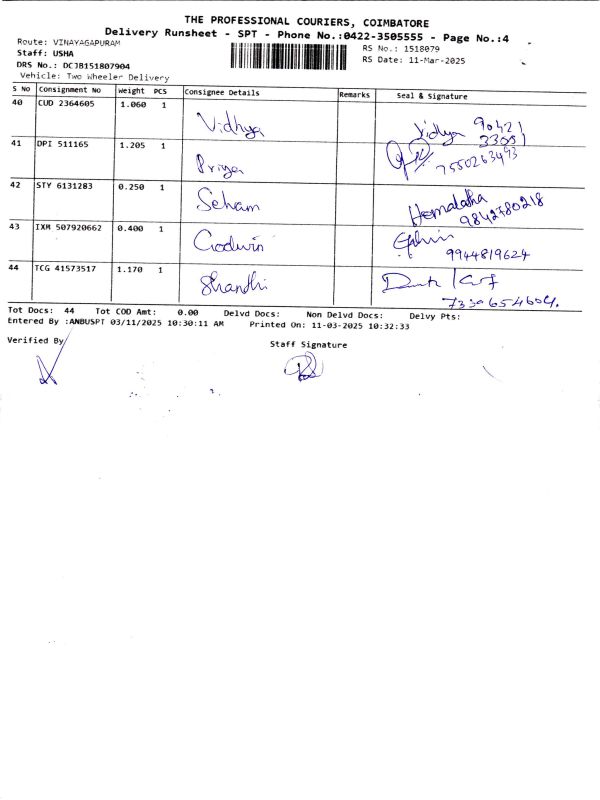 THE PROFESSIONAL COURIERS, COIMBATORE
Delivery Runsheet - SPT - Phone No.:0422-3505555 - Page No.:4
Route: VINAYAGAPURAM
Staff: USHA
DRS No.: DCJB151807904
Vehicle: Two Wheeler Delivery
RS No.: 1518079
RS Date: 11-Mar-2025
S No Consignment No Weight PCS Consignee Details Remarks Seal & Signature
40 CUD 2364605 1.060 1 Vidhya Vidhya 90421
33051
41 DPI 511165 1.205 1 Priya 7550263493
42 STY 6131283 0.250 1 Seham Hemalatha
9842780218
43 IXM 507920662 0.400 1 Godwin
9944819624
44 TCG 41573517 1.170 1 Shandhi
7330654604.
Tot Docs: 44 Tot COD Amt: 0.00 Delvd Docs: Non Delvd Docs: Delvy Pts:
Entered By :ANBUSPT 03/11/2025 10:30:11 AM Printed On: 11-03-2025 10:32:33
Verified By
Staff Signature